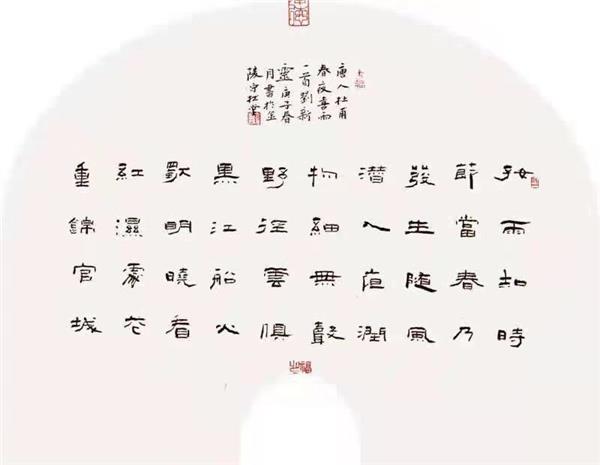 好雨知時
節當春乃
發生隨風
潛入夜潤
物細無聲
野徑雲俱
黑江船火
獨明曉看
紅濕處花
重錦官城
唐人杜甫
春夜喜雨
一首劉新
靈庚子春
月書於金
陵守拙堂